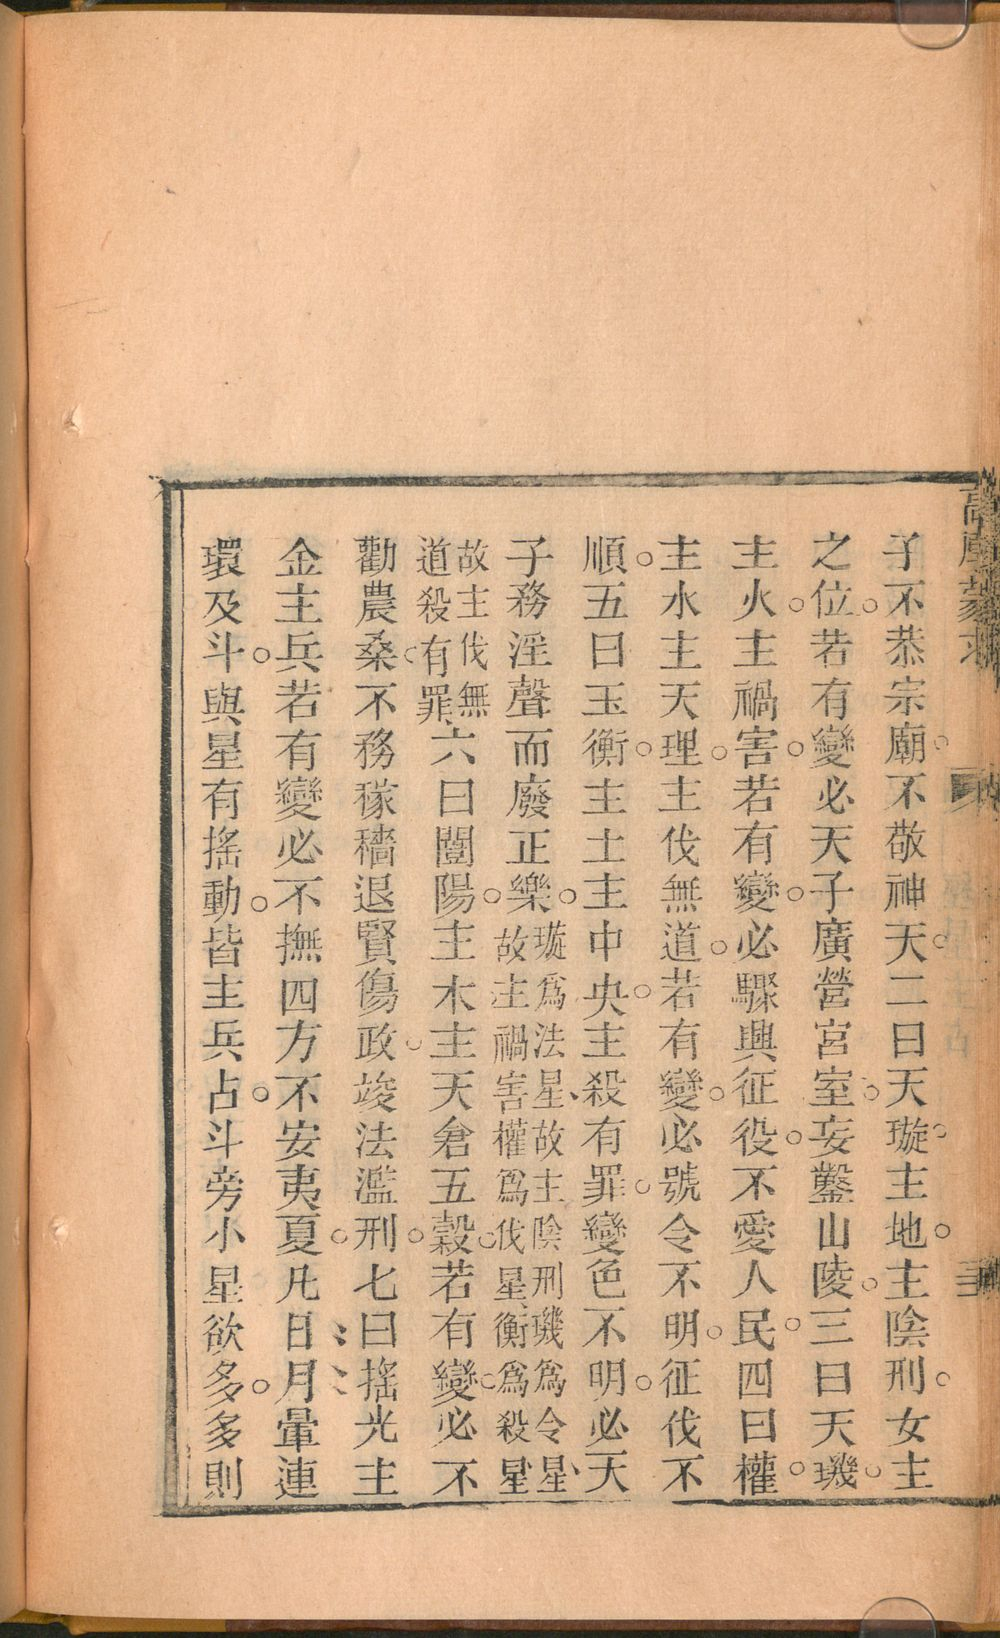 子不恭宗廟不敬神天二曰天璇主地主陰刑女主
之位若有變必天子廣營宮室妄鑿山陵三曰天璣
主火主禍害若有變必驟興征役不愛人民四曰權
主水主天理主伐無道若有變必號令不明征伐不
順五曰玉衡主土主中央主殺有罪變色不明必天
子務淫聲而廢正樂璇爲法星故主陰刑璣爲令星
故主禍害權爲伐星衡爲殺星
故主伐無
道殺有罪六曰闓陽主木主天倉五穀若有變必不
勸農桑不務稼穡退賢傷政竣法濫刑七曰搖光主
金主兵若有變必不撫四方不安夷夏凡日月暈連
環及斗與星有搖動皆主兵占斗旁小星欲多多則